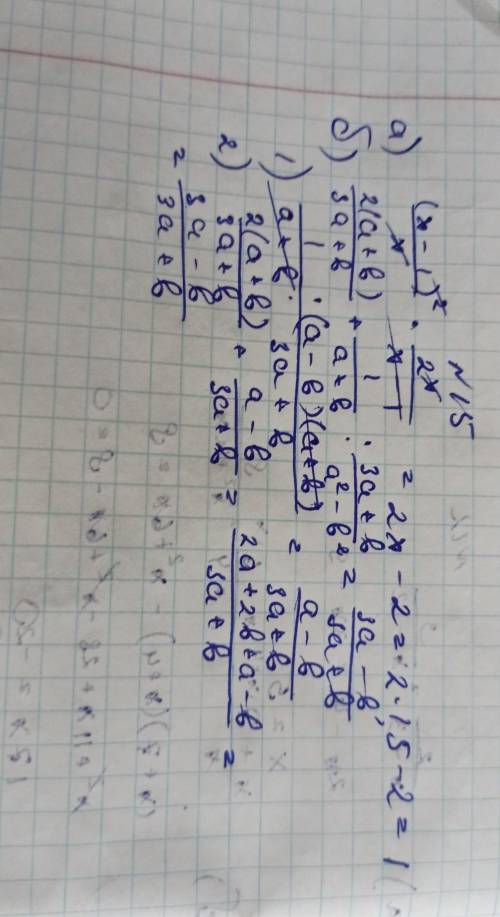 № 15
а) (x - 1)² / x · 2x / x - 1 = 2x - 2 = 2 · 1,5 - 2 = 1
б) 2(a + b) / 3a + b + 1 / a + b : 3a + b / a² - b² = 3a - b / 3a + b
1) 1 · (a - b)(a + b) / a + b · 3a + b = a - b / 3a + b
2) 2(a + b) / 3a + b + a - b / 3a + b = 2a + 2b + a - b / 3a + b =
= 3a - b / 3a + b